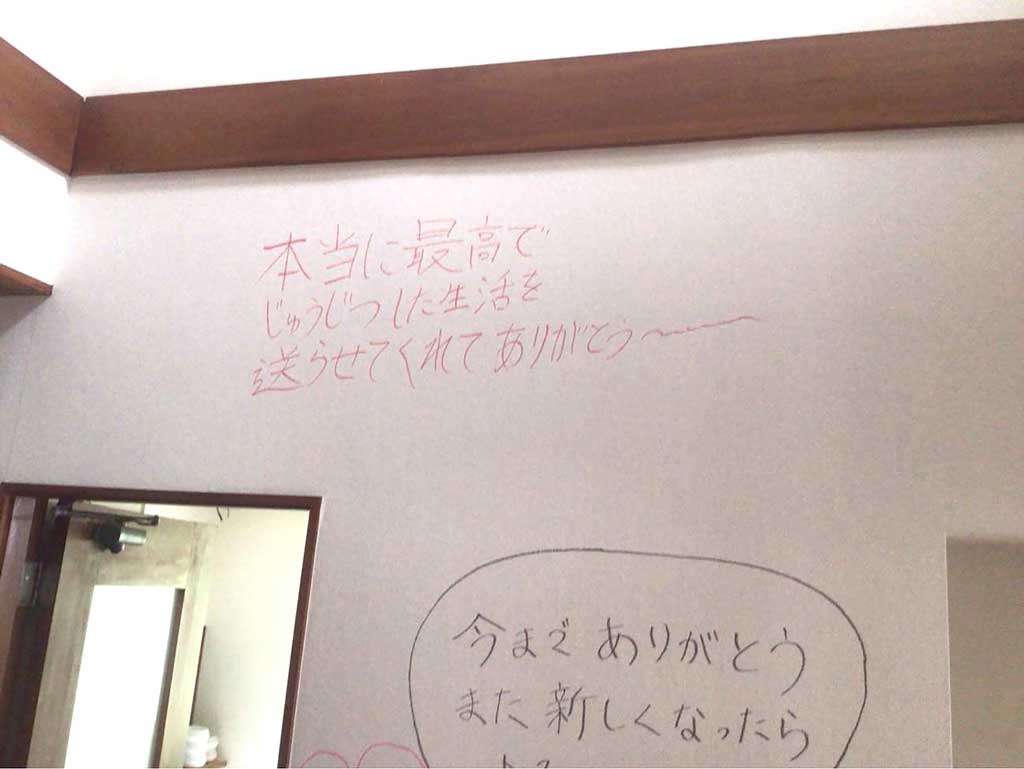 本当に最高で
じゅうじつした生活を
送らせてくれてありがとう〜
今まで ありがとう
また 新しくなったら